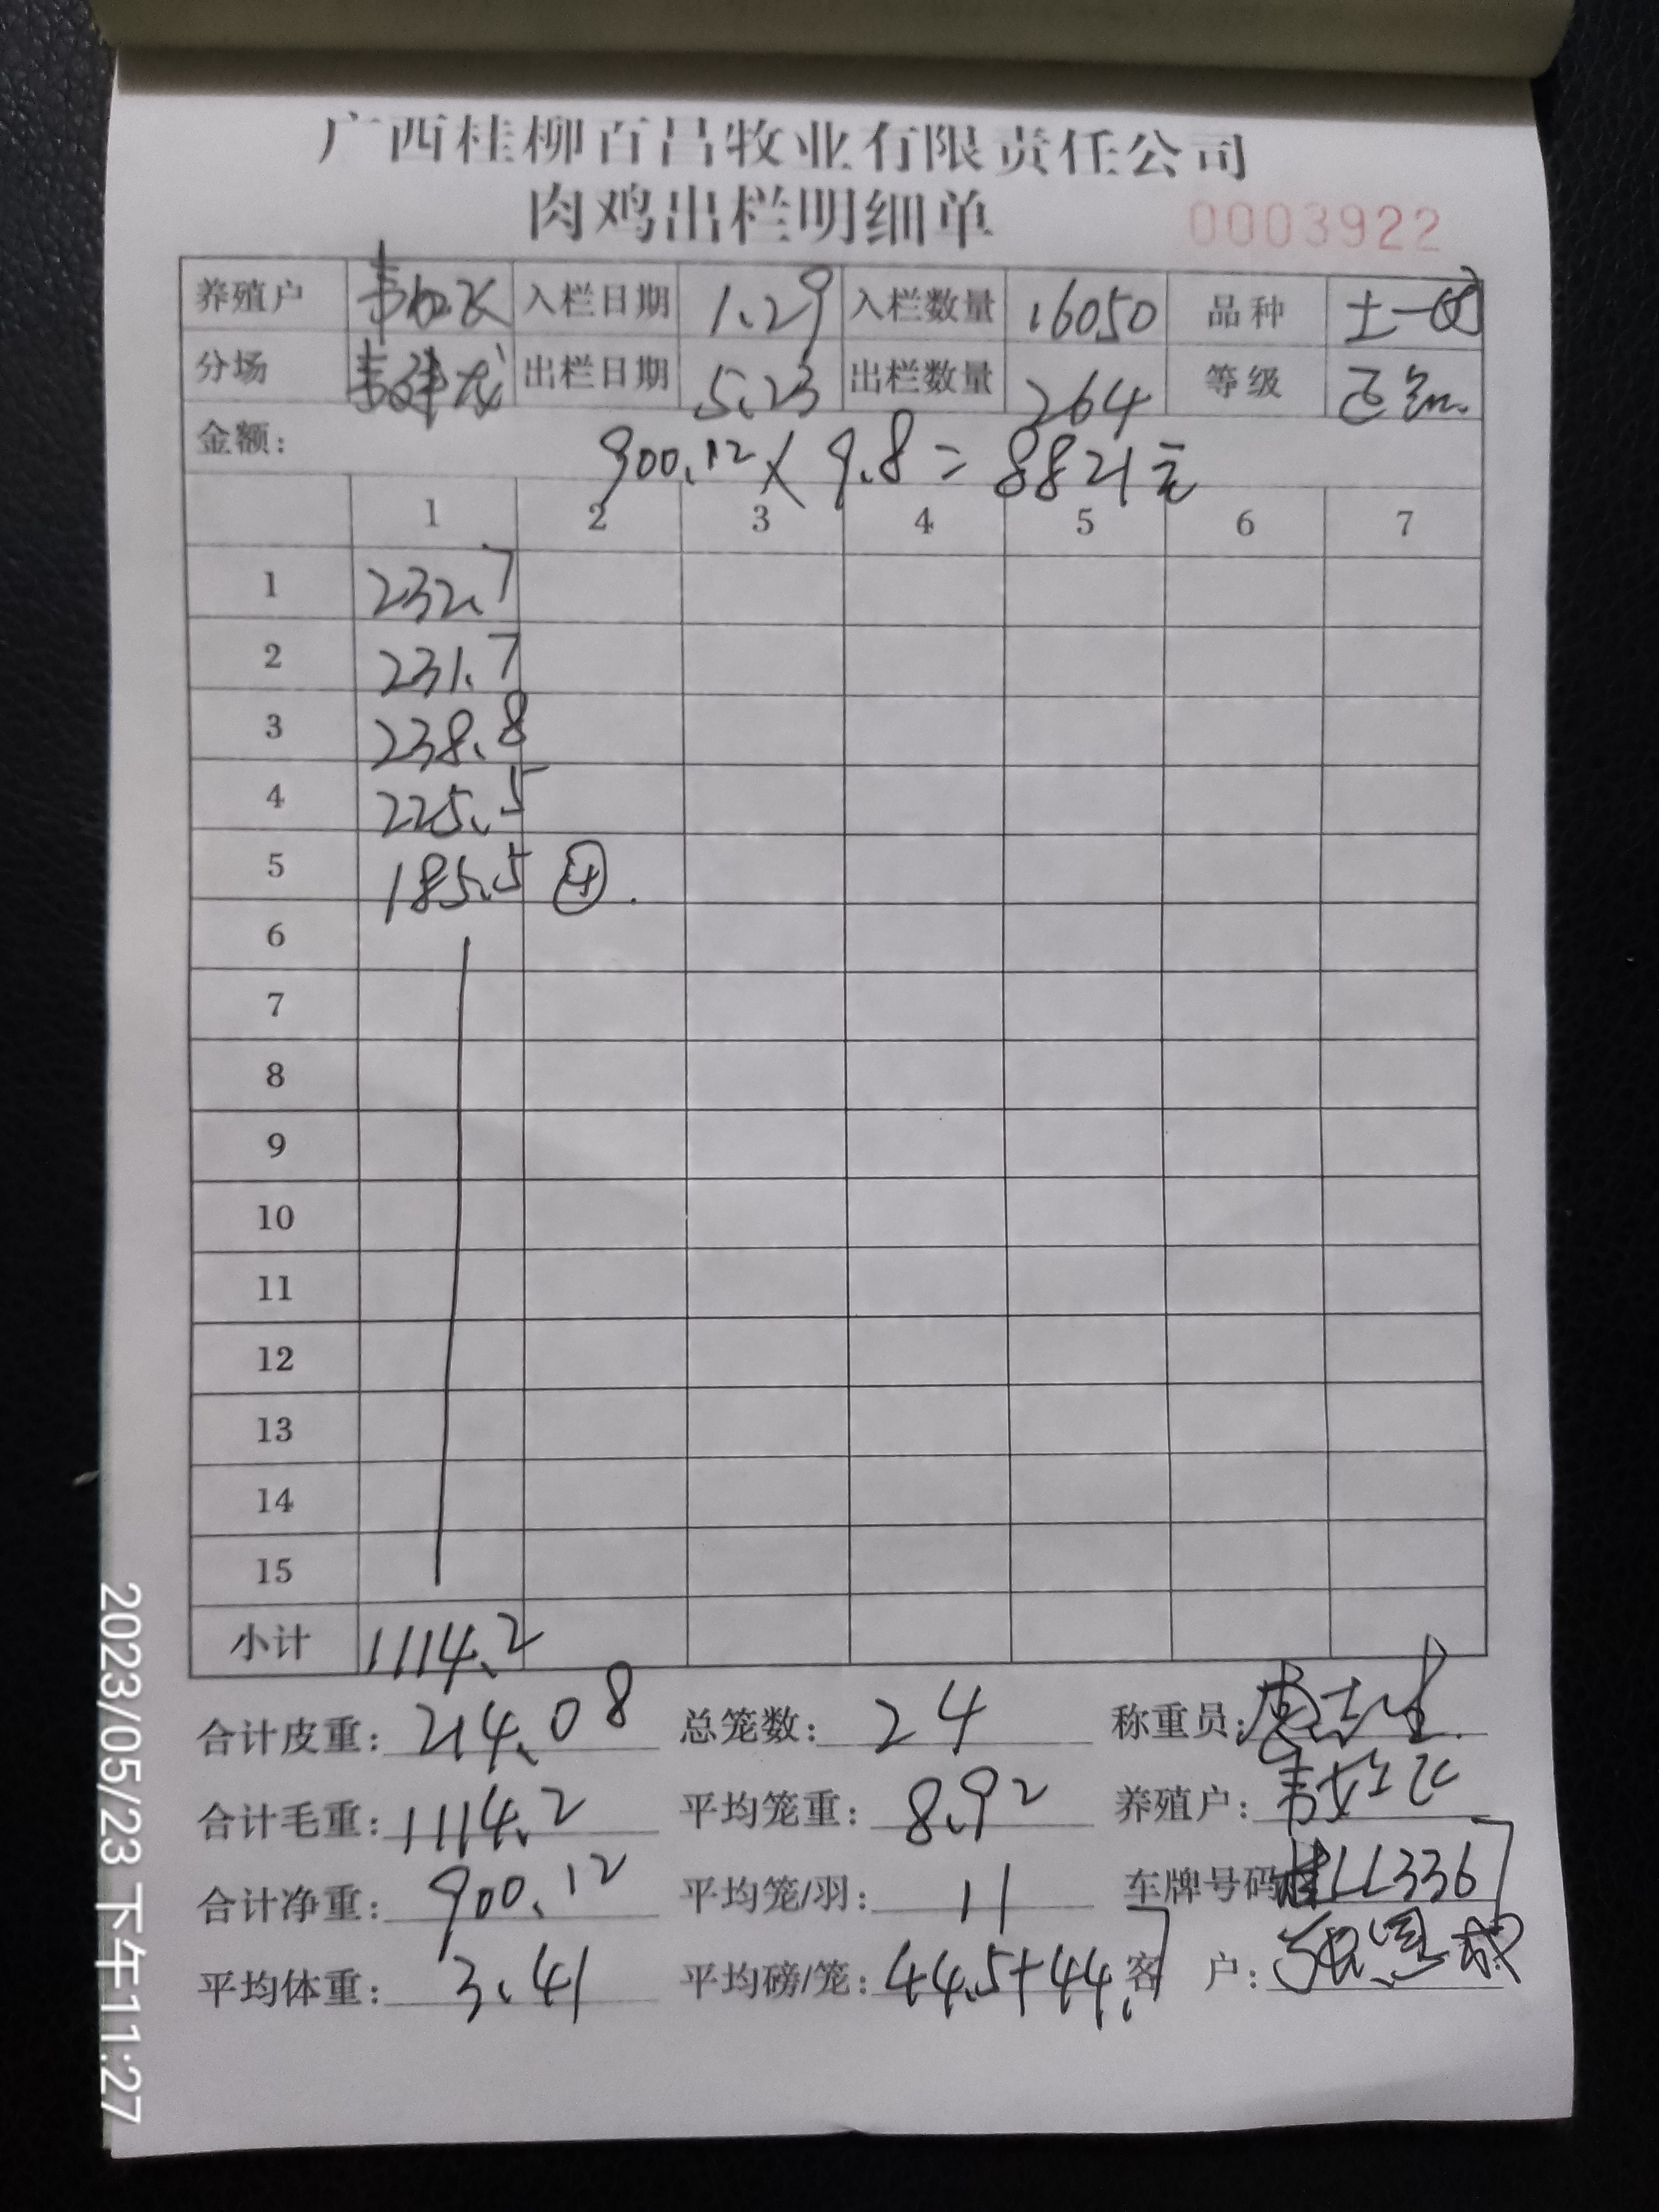 广西桂柳百昌牧业有限责任公司
肉鸡出栏明细单 0003922
养殖户 入栏日期 1.29 入栏数量 16050 品种 土一
分场 出栏日期 5.23 出栏数量 264 等级
金额: 900.12 × 9.8 = 8821元
1 2 3 4 5 6 7
1 232.7
2 231.7
3 238.8
4 225.5
5 185.5 ④.
6
7
8
9
10
11
12
13
14
15
小计 1114.2
合计皮重: 214.08 总笼数: 24 称重员:
合计毛重: 1114.2 平均笼重: 8.92 养殖户:
合计净重: 900.12 平均笼/羽: 11 车牌号码 桂LL3367
平均体重: 3.41 平均磅/笼: 44.5+44.7 客 户:
2023/05/23 下午11:27